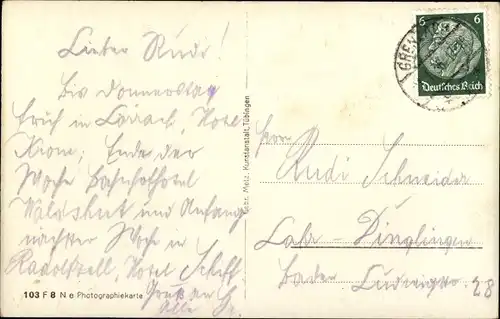 Lieber Rudi!
Bis Donnerstag
früh in Lörrach, Hotel
Krone, Ende der
Woche Bahnhofhotel
Waldshut und Anfang
nächster Woche in
Radolfzell, Hotel Schiff
Gruß an
Alle
103 F 8 N e Photographiekarte
Gebr. Metz, Kunstanstalt, Tübingen
6 6
Deutsches Reich
Herrn
Rudi Schneider
Lahr-Dinglingen
Baden
28